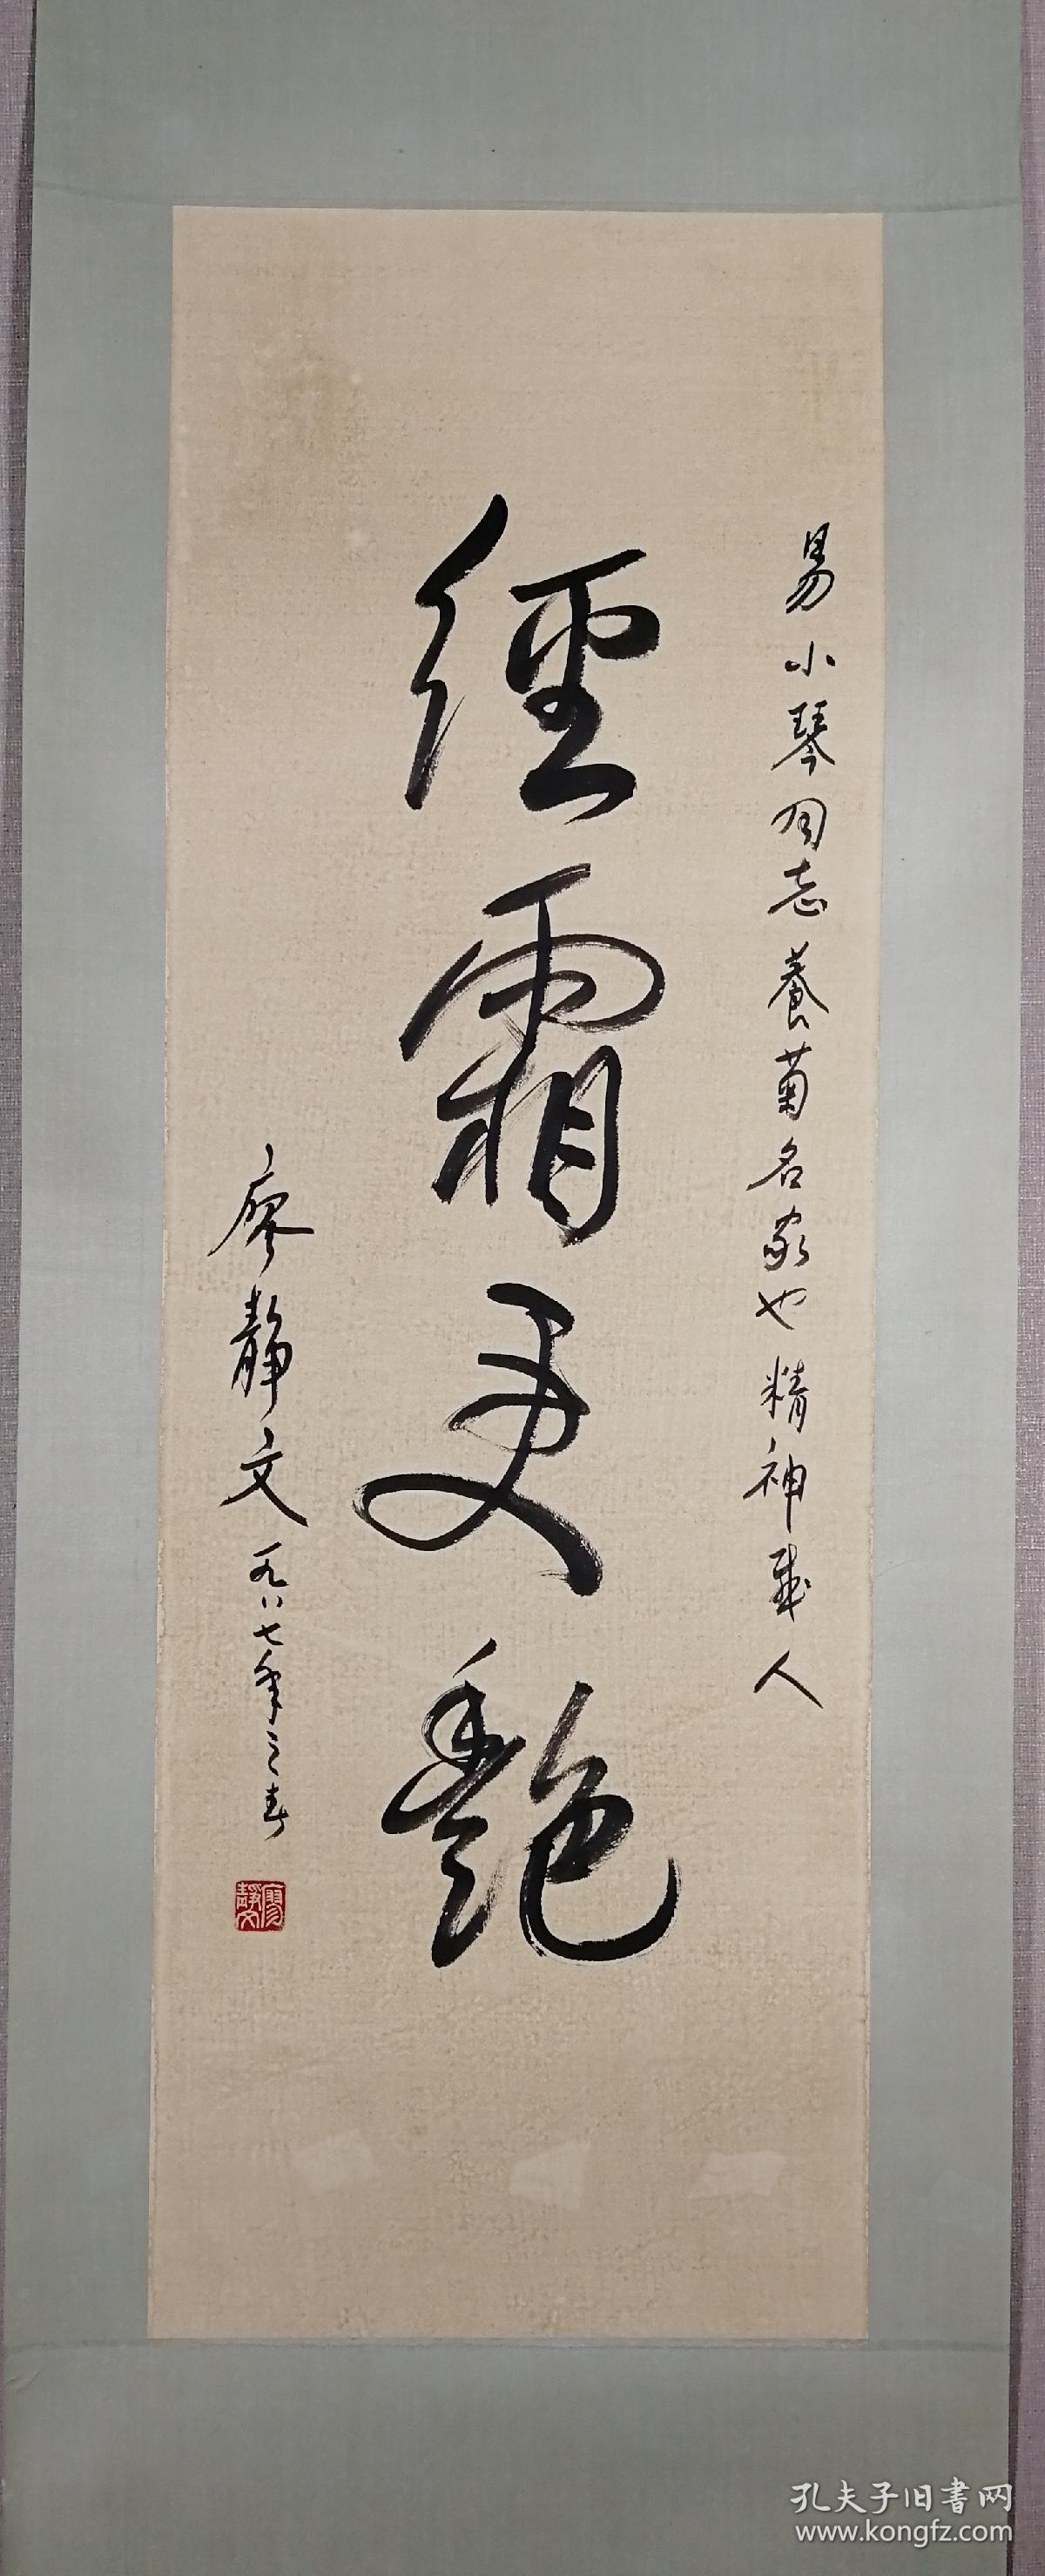 易小琴同志养菊名家也精神感人
經霜更艷
廖静文一九八七年之春
廖静文
孔夫子旧書网
www.kongfz.com